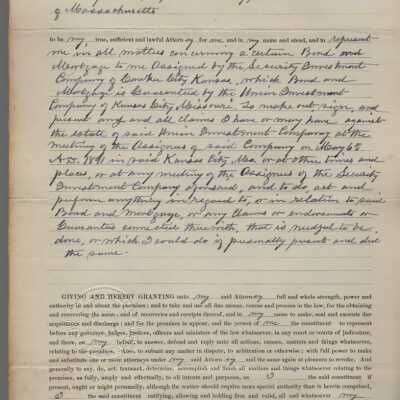 of Massachusetts
to be my true, sufficient and lawful Attorney, for me, and in my name and stead, and to represent
me in all matters concerning a certain Bond and
Mortgage to me Assigned by the Security Investment
Company of Cawker City Kansas, which Bond and
Mortgage is Guaranteed by the Union Investment
Company of Kansas City Missouri. To make out, sign and
present any and all claims I have or may have against
the estate of said Union Investment Company at the
meeting of the Assignee of said Company on May 6th
A.D. 1891 in said Kansas City Mo. or at other times and
places, or at any meeting of the Assignees of the Security
Investment Company aforesaid, and to do, act and
perform anything in regard to, or in relation to said
Bond and Mortgage, or any Claims or endorsements or
Guarantee connected therewith, that is needful to be
done, or which I could do if personally present and did
the same.
GIVING AND HEREBY GRANTING unto my said Attorney full and whole strength, power and
authority in and about the premises; and to take and use all due means, course and process in the law, for the obtaining
and recovering the same; and of recoveries and receipts thereof, and in my name to make, seal and execute due
acquittance and discharge; and for the premises to appear, and the person of me the constituent to represent
before any governor, judges, justices, officers and ministers of the law whatsoever, in any court or courts of judicature,
and there, on my behalf, to answer, defend and reply unto all actions, causes, matters and things whatsoever,
relating to the premises. Also, to submit any matter in dispute, to arbitration or otherwise; with full power to make
and substitute one or more attorneys under my said Attorney and the same again at pleasure to revoke. And
generally to say, do, act, transact, determine, accomplish and finish all matters and things whatsoever relating to the
premises, as fully, amply and effectually, to all intents and purposes, as I the said constituent if
present, ought or might personally, although the matter should require more special authority than is herein comprised,
I the said constituent ratifying, allowing and holding firm and valid, all and whatsoever my